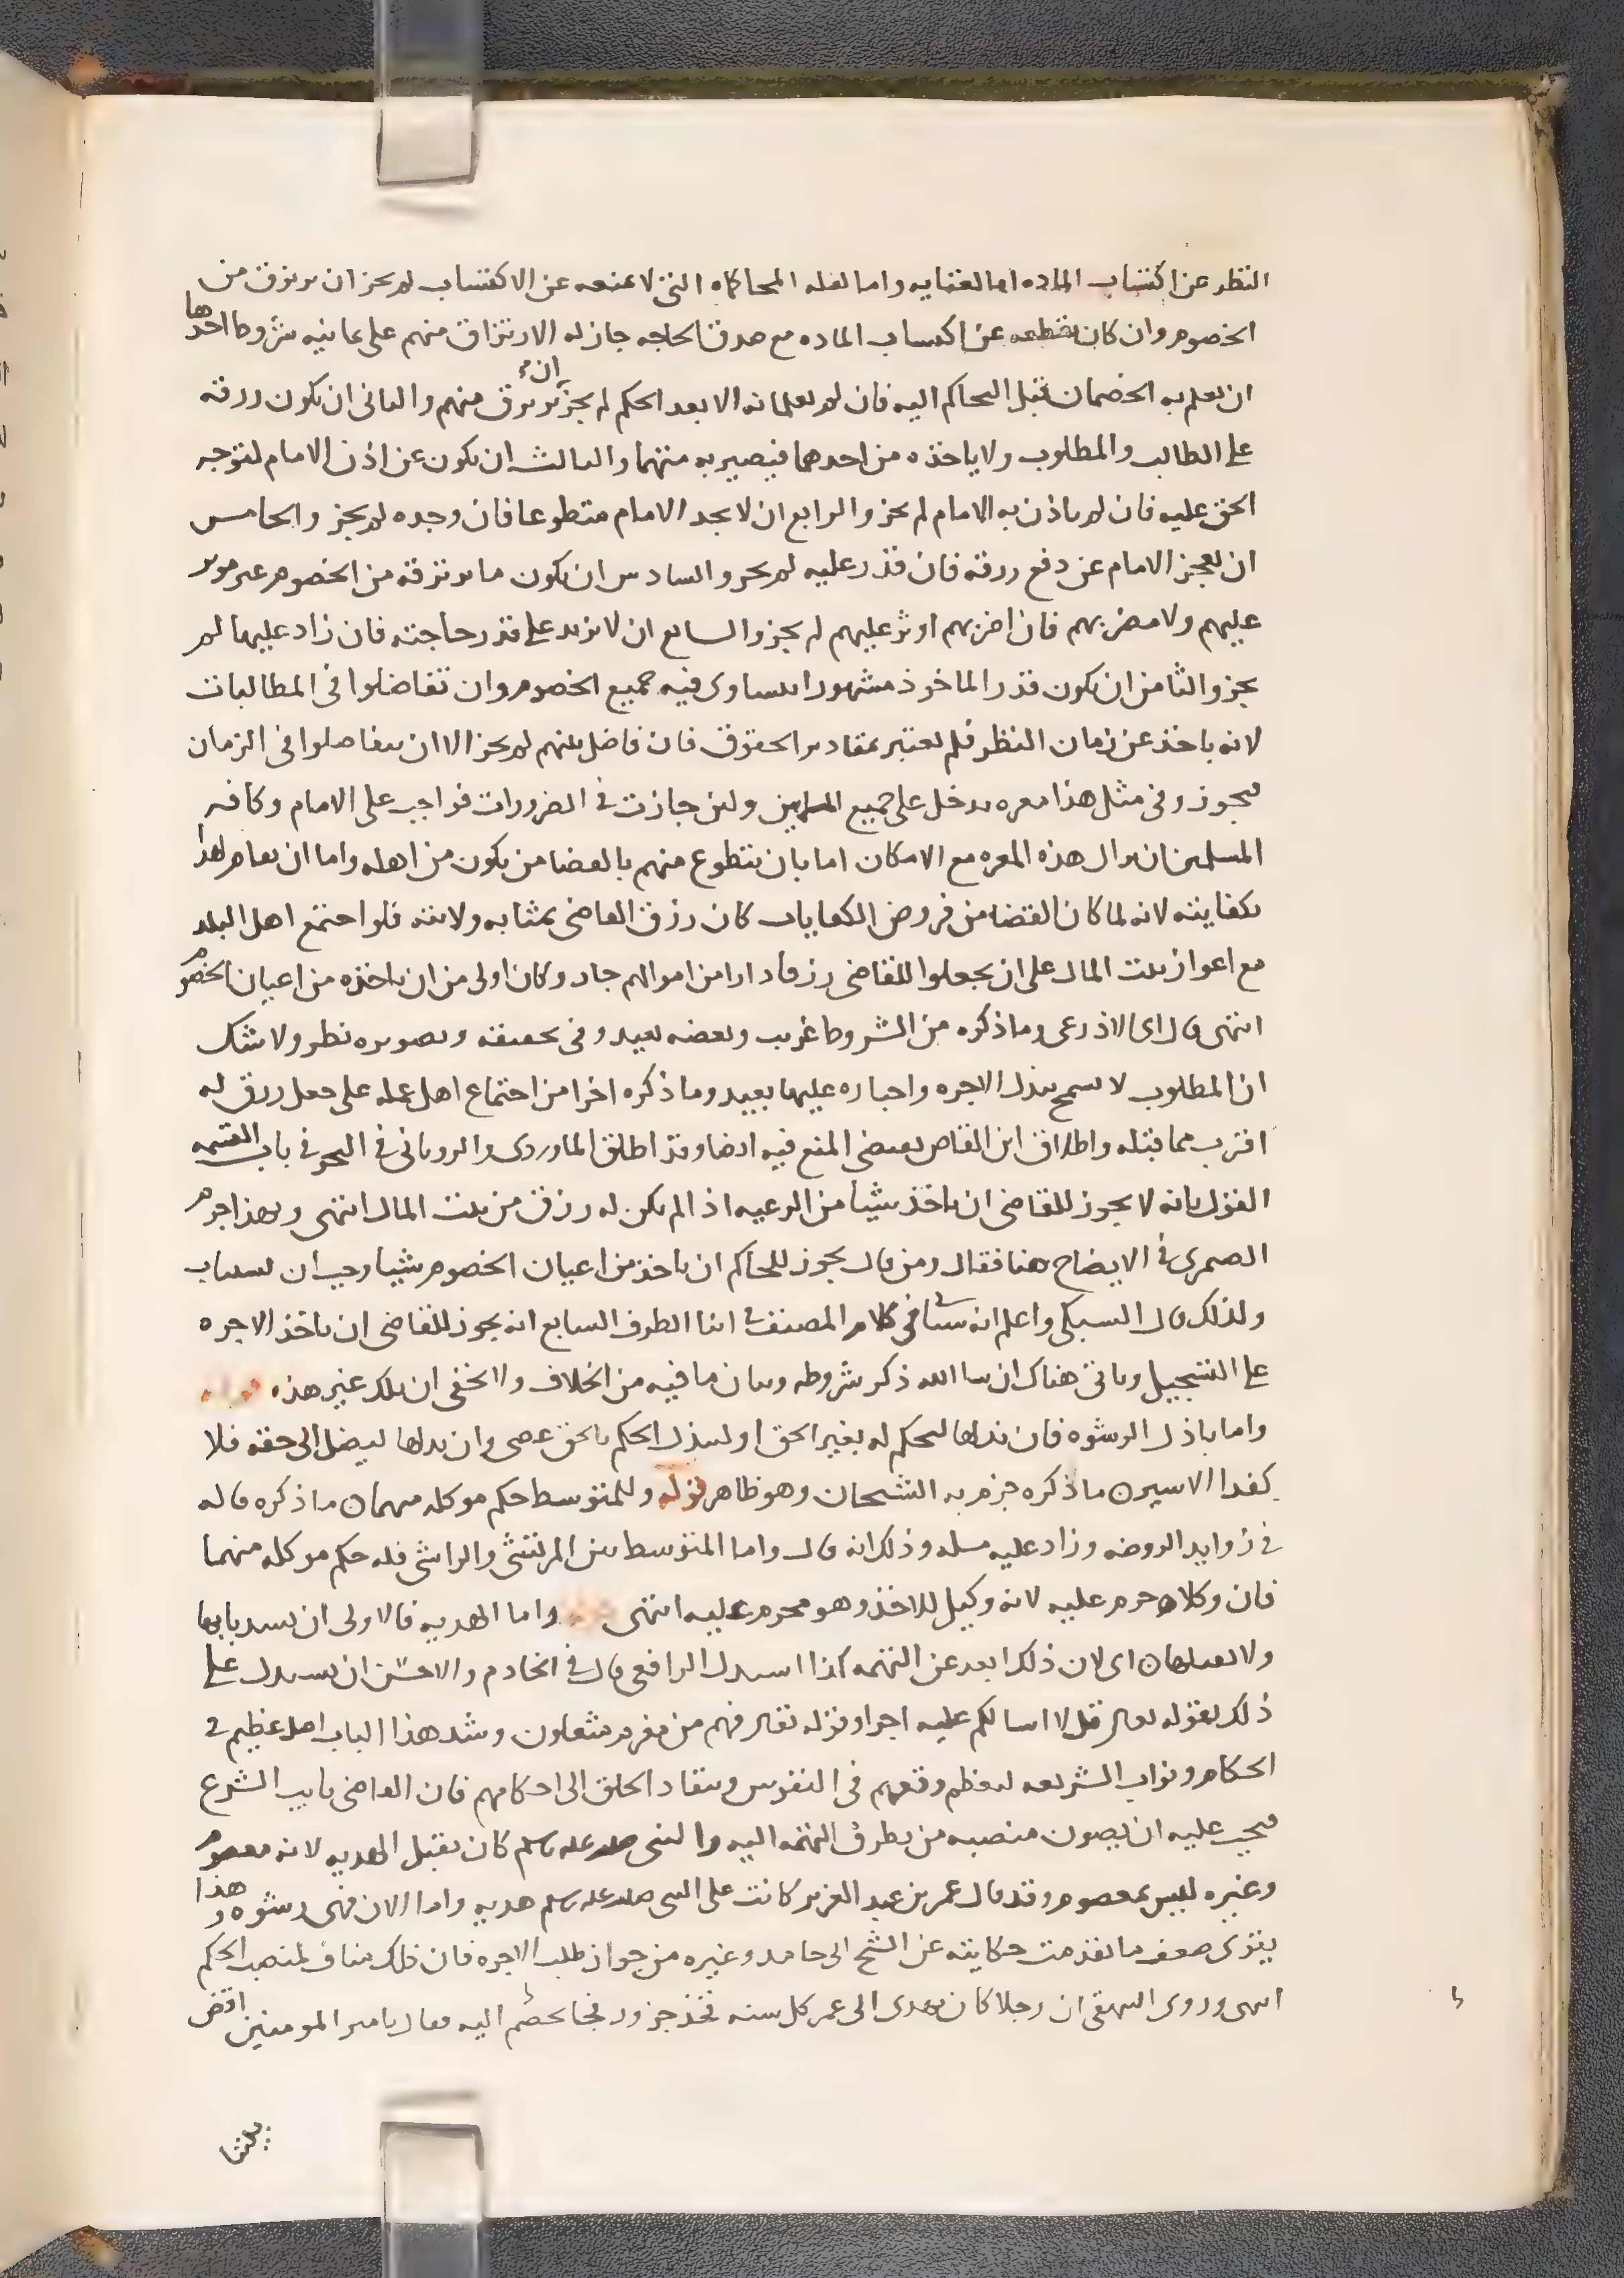 النظر عن اكتساب الماده اما لغنايه واما لقله المحاكماه التى لا تمنعه عن الاكتساب لم يجز ان يرتزق من
الخصوم وان كان يقطعه عن اكتساب الماده مع صدق الحاجه جاز له الارتزاق منهم على ثمانيه شروط احدها
ان يعلم به الخصمان قبل التحاكم اليه فان لم يعلما به الا بعد الحكم لم يجز ان يرتزق منهم والثانى ان يكون رزقه
على الطالب والمطلوب ولا ياخذه من احدهما فيصير به متهما والثالث ان يكون عن اذن الامام لتوجه
الحق عليه فان لم ياذن به الامام لم يجز والرابع ان لا يجد الامام متطوعا فان وجده لم يجز والخامس
ان يعجز الامام عن دفع رزقه فان قدر عليه لم يجز والسادس ان يكون ما يرتزقه من الخصوم غير موثر
عليهم ولا مضر بهم فان اضر بهم او اثر عليهم لم يجز والسابع ان لا يزيد على قدر حاجته فان زاد عليها لم
يجز والثامن ان يكون قدر الماخوذ مشهورا يتساوى فيه جميع الخصوم وان تفاضلوا فى المطالبات
لانه ياخذ عن زمان النظر فلم يعتبر بمقادير الحقوق فان فاضل بينهم لم يجز الا ان يتفاضلوا فى الزمان
فيجوز وفى مثل هذا معره يدخل على جميع المسلمين ولئن جازت فى الضرورات فواجب على الامام وكافه
المسلمين ان يزال هذه المعره مع الامكان اما بان يتطوع منهم بالقضا من يكون من اهله واما ان يقام لهذا
بكفايته لانه لما كان القضا من فروض الكفايات كان رزق القاضى بمثابه ولايته فلو اجتمع اهل البلد
مع اعواز بيت المال على ان يجعلوا للقاضى رزقا دارا من اموالهم جاز وكان اولى من ان ياخذه من اعيان الخصوم
انتهى قال اى الاذرعى وما ذكره من الشروط غريب وبعضه بعيد وفى تحقيقه وتصويره نظر ولا شك
ان المطلوب لا يسمح ببذل الاجره واجباره عليها بعيد وما ذكره اخرا من اجتماع اهل عمله على جعل رزق له
اقرب مما قبله واطلاق ابن القاص يقتضى المنع فيه ايضا وقد اطلق الماوردى والرويانى فى البحر فى باب القسمه
القول بانه لا يجوز للقاضى ان ياخذ شيئا من الرعيه اذا لم يكن له رزق من بيت المال انتهى وبهذا جزم
الصيمرى فى الايضاح هنا فقال ومن قال يجوز للحاكم ان ياخذ من اعيان الخصوم شيئا وجب ان يستتاب
ولذلك قال السبكى واعلم انه سياتى فى كلام المصنف فى اثنا الطرف السابع انه يجوز للقاضى ان ياخذ الاجره
على التسجيل وياتى هناك ان شا الله ذكر شروطه وبيان ما فيه من الخلاف ولا يخفى ان تلك غير هذه قوله
واما باذل الرشوه فان بذلها ليحكم له بغير الحق او ليبذل الحكم بالحق عصى وان بذلها ليصل الى حقه فلا
كفدا الاسير ن ما ذكره جزم به الشيخان وهو ظاهر قوله وللمتوسط حكم موكله منهما ن ما ذكره قاله
فى زوايد الروضه وزاد عليه مسله وذلك انه قال واما المتوسط بين المرتشى والراشى فله حكم موكله منهما
فان وكلاه حرم عليه لانه وكيل للاخذ وهو محرم عليه انتهى قوله واما الهديه فالاولى ان يسد بابها
ولا يقبلها ن اى لان ذلك ابعد عن التهمه كذا استدل الرافعى قال فى الخادم والاحسن ان يستدل على
ذلك بقوله تعالى قل لا اسالكم عليه اجرا وقوله تعالى فهم من مغرم مثقلون وسد هذا الباب اصل عظيم فى
الحكام ونواب الشريعه لتعظم وقعهم فى النفوس وينقاد الخلق الى احكامهم فان القاضى نايب الشرع
فيجب عليه ان يصون منصبه من تطرق التهمه اليه والنبى صلى الله عليه وسلم كان يقبل الهديه لانه معصوم
وغيره ليس بمعصوم وقد قال عمر بن عبد العزيز كانت على النبى صلى الله عليه وسلم هديه واما الان فهى رشوه وهذا
يقوى ضعف ما تقدمت حكايته عن الشيخ ابى حامد وغيره من جواز طلب الاجره فان ذلك مناف لمنصب الحكم
انتهى وروى البيهقى ان رجلا كان يهدى الى عمر كل سنه فخذ جزور فجا يخاصم اليه فقال يا امير المومنين اقض
بيننا